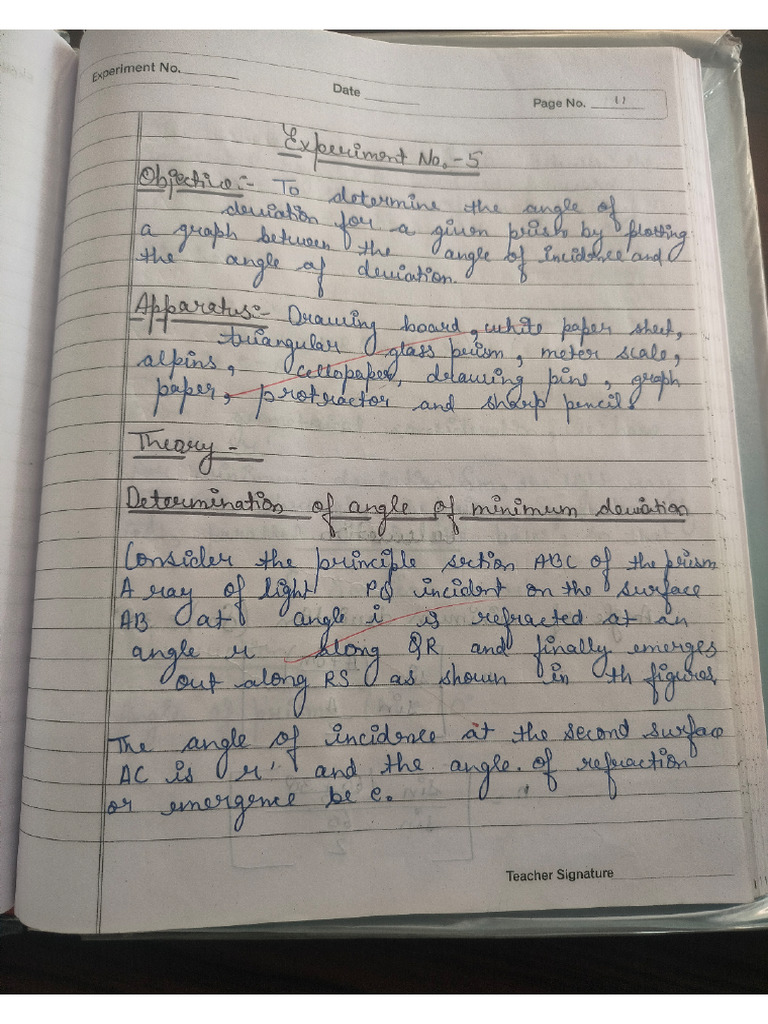 Experiment No.
Date
Page No. 11
Experiment No.-5
Objective:- To determine the angle of
deviation for a given prism by plotting
a graph between the angle of incidence and
the angle of deviation.
Apparatus:- Drawing board, white paper sheet,
triangular glass prism, meter scale,
alpins, cellopaper, drawing pins, graph
paper, protractor and sharp pencils
Theory -
Determination of angle of minimum deviation
Consider the principle section ABC of the prism
A ray of light PQ incident on the surface
AB at angle i is refracted at an
angle r along QR and finally emerges
out along RS as shown in th figures
The angle of incidence at the second surface
AC is r' and the angle. of refraction
or emergence be e.
Teacher Signature